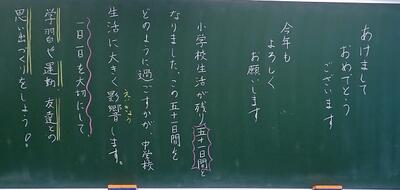 あけまして
おめでとう
ございます
今年も
よろしく
お願いします
小学校生活が残り五十一日間と
なりました。この五十一日間を
どのように過ごすかが、中学校
生活に大きく影響します。
えいきょう
一日一日を大切にして
学習や運動、友達との
思い出づくりをしよう!